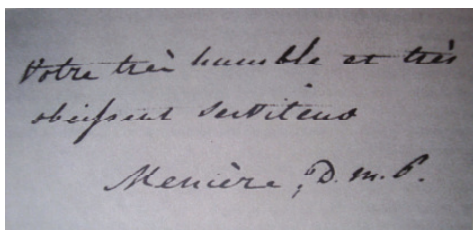 Votre très humble et très
obéissant serviteur
Menière, D. m. P.